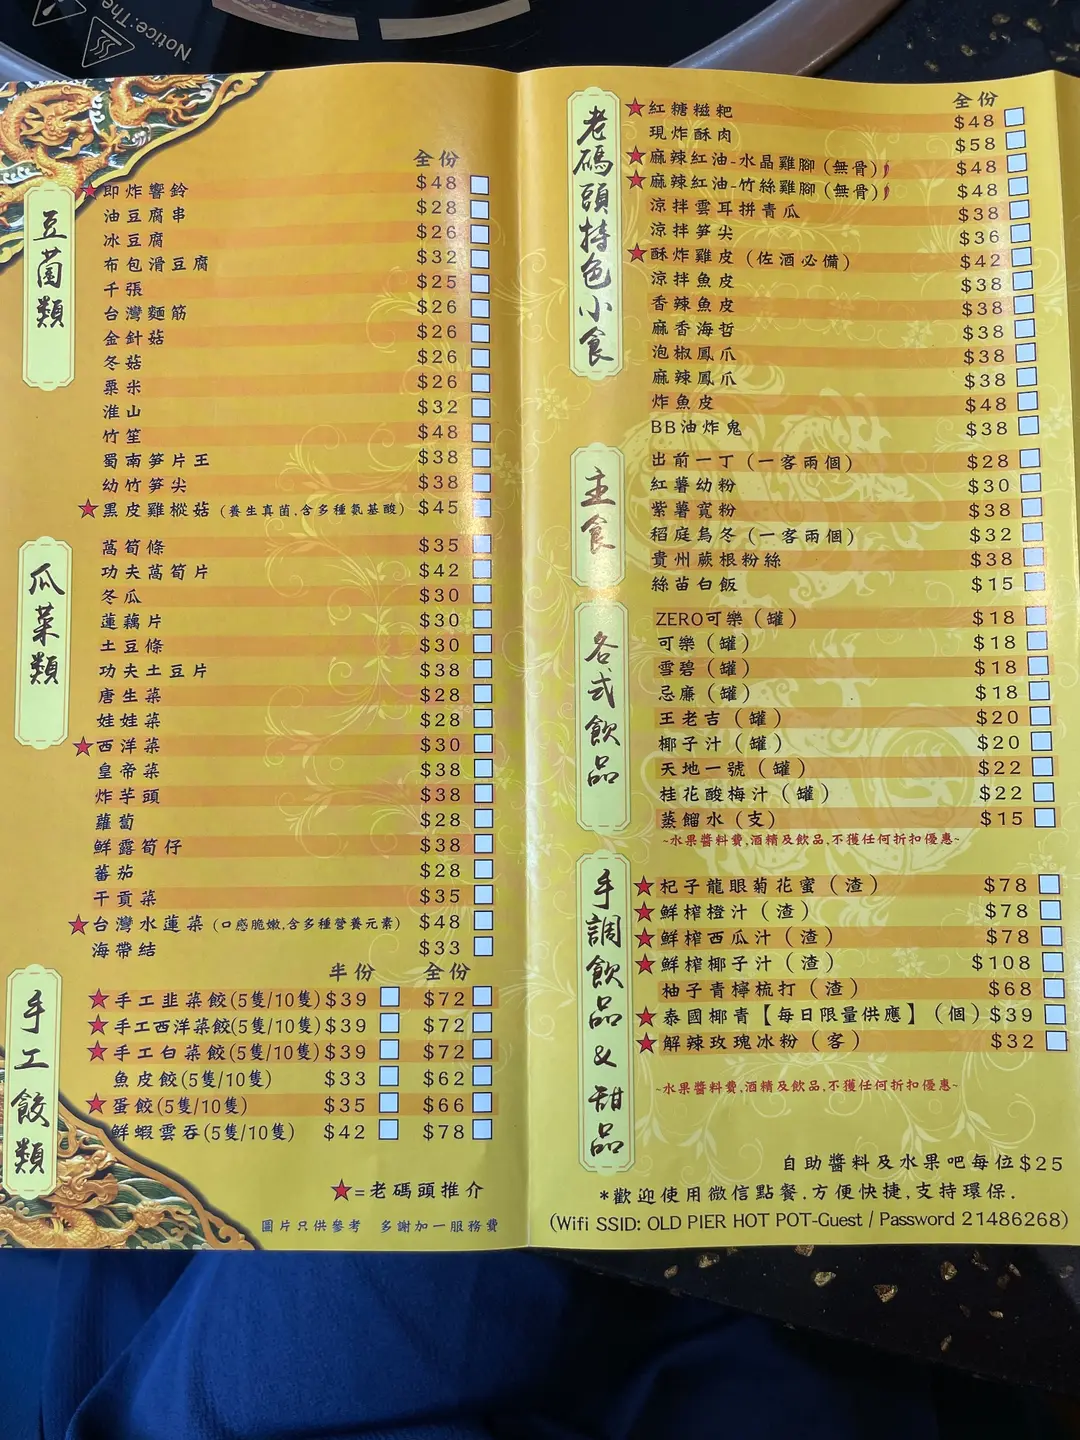 Notice:The
豆菌類
全份
★即炸響鈴 $48
油豆腐串 $28
冰豆腐 $26
布包滑豆腐 $32
千張 $25
台灣麵筋 $26
金針菇 $26
冬菇 $26
粟米 $26
淮山 $32
竹笙 $48
蜀南笋片王 $38
幼竹笋尖 $38
★黑皮雞樅菇 (養生真菌,含多種氨基酸) $45
瓜菜類
萵筍條 $35
功夫萵筍片 $42
冬瓜 $30
蓮藕片 $30
土豆條 $30
功夫土豆片 $38
唐生菜 $28
娃娃菜 $28
★西洋菜 $30
皇帝菜 $38
炸芋頭 $38
蘿蔔 $28
鮮露筍仔 $38
蕃茄 $28
干貢菜 $35
★台灣水蓮菜 (口感脆嫩,含多種營養元素) $48
海帶結 $33
手工餃類
半份 全份
★手工韭菜餃(5隻/10隻) $39 $72
★手工西洋菜餃(5隻/10隻) $39 $72
★手工白菜餃(5隻/10隻) $39 $72
魚皮餃(5隻/10隻) $33 $62
★蛋餃(5隻/10隻) $35 $66
鮮蝦雲吞(5隻/10隻) $42 $78
★=老碼頭推介
圖片只供參考 多謝加一服務費
老碼頭特色小食
全份
★紅糖糍粑 $48
現炸酥肉 $58
★麻辣紅油-水晶雞腳(無骨) $48
★麻辣紅油-竹絲雞腳(無骨) $48
涼拌雲耳拼青瓜 $38
涼拌笋尖 $36
★酥炸雞皮(佐酒必備) $42
涼拌魚皮 $38
香辣魚皮 $38
麻香海哲 $38
泡椒鳳爪 $38
麻辣鳳爪 $38
炸魚皮 $48
BB油炸鬼 $38
主食
出前一丁(一客兩個) $28
紅薯幼粉 $30
紫薯寬粉 $38
稻庭烏冬(一客兩個) $32
貴州蕨根粉絲 $38
絲苗白飯 $15
各式飲品
ZERO可樂(罐) $18
可樂(罐) $18
雪碧(罐) $18
忌廉(罐) $18
王老吉(罐) $20
椰子汁(罐) $20
天地一號(罐) $22
桂花酸梅汁(罐) $22
蒸餾水(支) $15
~水果醬料費,酒精及飲品,不獲任何折扣優惠~
手調飲品&甜品
★杞子龍眼菊花蜜(渣) $78
★鮮榨橙汁(渣) $78
★鮮榨西瓜汁(渣) $78
★鮮榨椰子汁(渣) $108
柚子青檸梳打(渣) $68
★泰國椰青【每日限量供應】(個) $39
★解辣玫瑰冰粉(客) $32
~水果醬料費,酒精及飲品,不獲任何折扣優惠~
自助醬料及水果吧每位$25
*歡迎使用微信點餐.方便快捷,支持環保.
(Wifi SSID: OLD PIER HOT POT-Guest / Password 21486268)